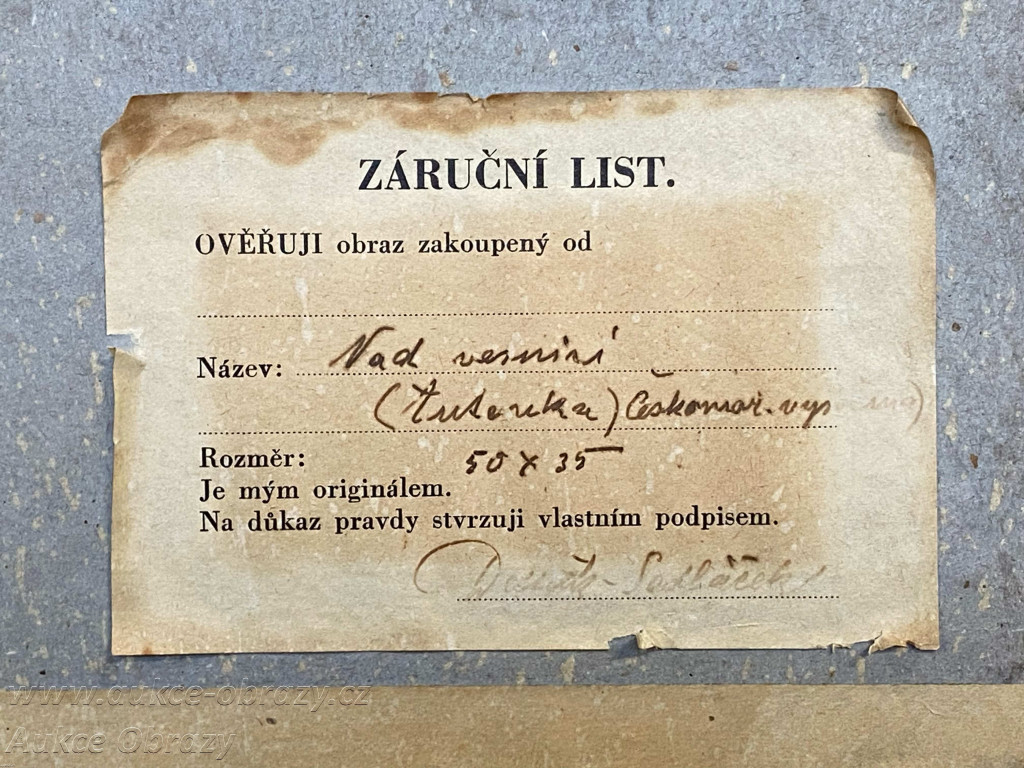 ZÁRUČNÍ LIST.
OVĚŘUJI obraz zakoupený od
Název: Nad vesnicí
Českomor. vys
Rozměr: 50 x 35
Je mým originálem.
Na důkaz pravdy stvrzuji vlastním podpisem.
Sedláček
www.aukce-obrazy.cz
Aukce Obrazy